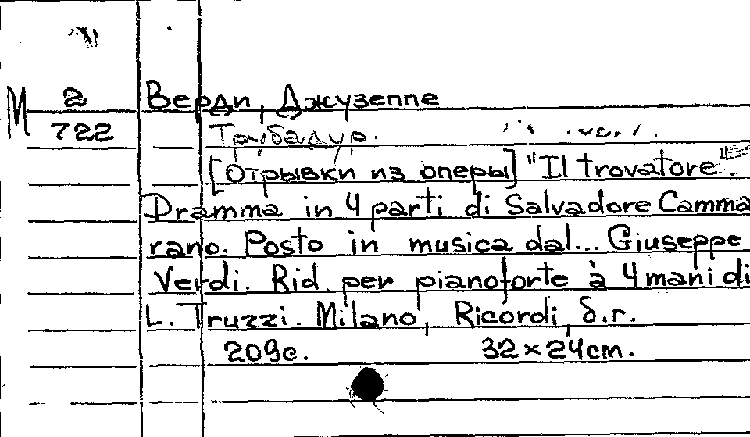 М 2 Верди, Джузеппе
722 Трубадур.
[Отрывки из оперы] "Il trovatore".
Dramma in 4 parti di Salvadore Camma
rano. Posto in musica dal... Giuseppe
Verdi. Rid. per pianoforte à 4 mani di
L. Truzzi. Milano, Ricordi, б.г.
209с. 32×24cm.